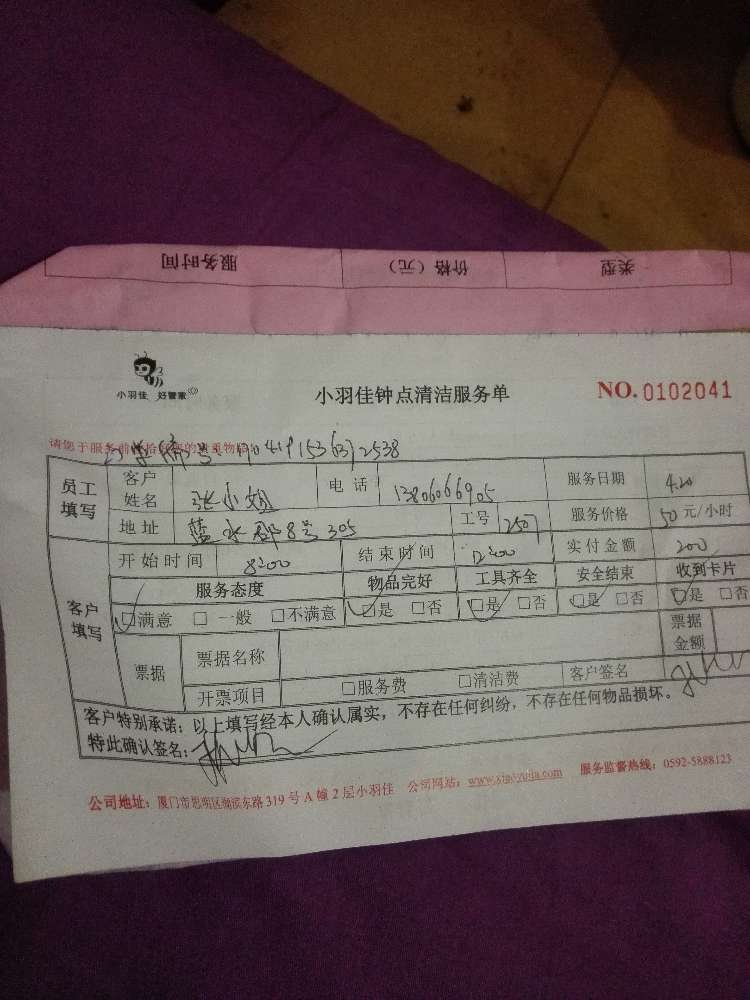 服务时间 价格（元） 类型
小羽佳 好管家
小羽佳钟点清洁服务单 NO.0102041
请您于服务前
员工填写 客户姓名 张小姐 电话 13806066905 服务日期 4.20
地址 蓝水郡8号305 工号 2507 服务价格 50元/小时
客户填写 开始时间 8:00 结束时间 12:00 实付金额 200
服务态度 物品完好 工具齐全 安全结束 收到卡片
☑满意 □一般 □不满意 ☑是 □否 ☑是 □否 ☑是 □否 ☑是 □否
票据 票据名称 票据金额
开票项目 □服务费 □清洁费 客户签名
客户特别承诺：以上填写经本人确认属实，不存在任何纠纷，不存在任何物品损坏。
特此确认签名：
公司地址：厦门市思明区湖滨东路319号A幢2层小羽佳 公司网站：www.xiaoyujia.com 服务监督热线：0592-5888123